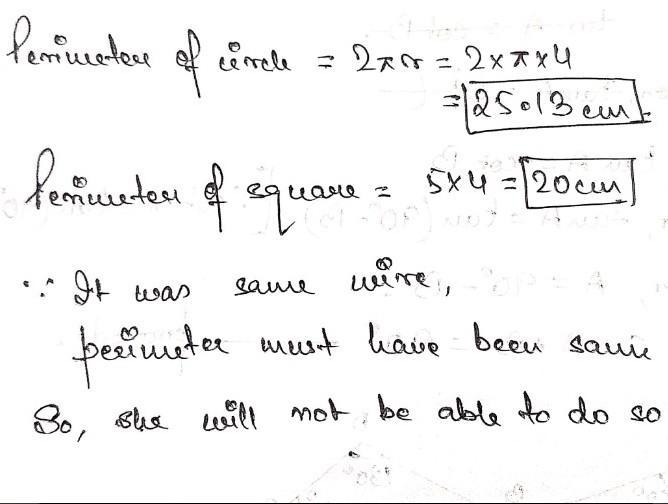 Perimeter of circle = 2πr = 2×π×4
= 25.13 cm.
Perimeter of square = 5×4 = 20cm
∵ It was same wire,
perimeter must have been same
So, she will not be able to do so